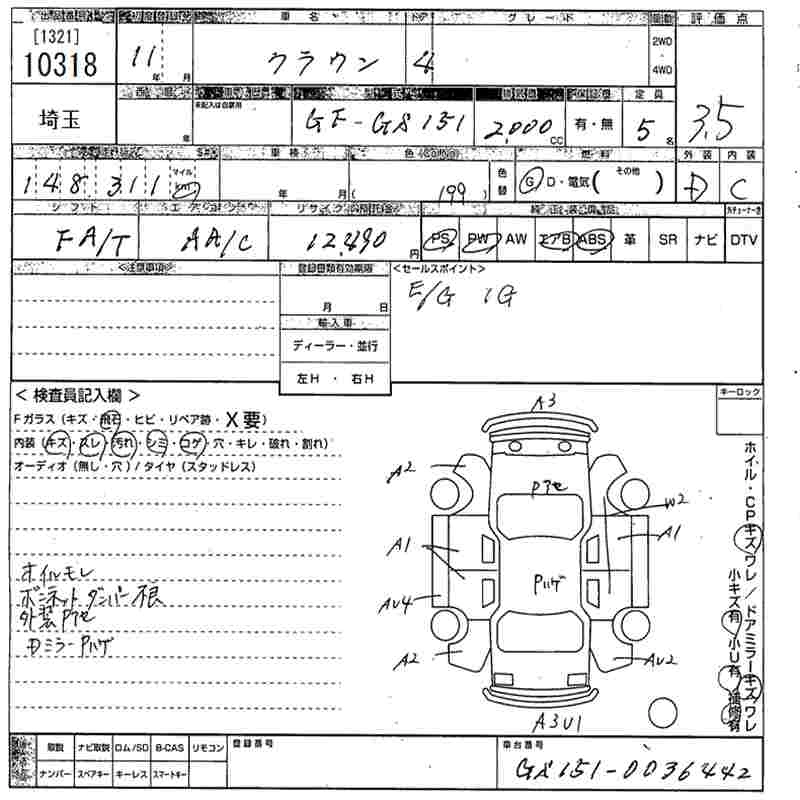 車名 ドア グレード 評価点
[1321]
10318
11 年 月
クラウン
4
2WD
・
4WD
3.5
埼玉
年
未記入は自家用
GF-GS151
2,000 CC
有・無
定員
5 名
走行 車検 色 燃料 外装 内装
148,311 マイル km
年 月
(199)
色替
G D・電気(その他)
D
C
シフト エアコン
FA/T
AA/C
12,490 円
PS PW AW エアB ABS 革 SR ナビ DTV
<注意事項>
登録書類有効期限
月 日
輸入車
ディーラー・並行
左H ・ 右H
<セールスポイント>
E/G 1G
<検査員記入欄>
Fガラス(キズ・飛石・ヒビ・リペア跡・X要)
内装(キズ・スレ・汚れ・シミ・コゲ・穴・キレ・破れ・割れ)
オーディオ(無し・穴)/タイヤ(スタッドレス)
オイルモレ
ボンネットダンパー不良
外装Pアセ
DミラーPハゲ
キーロック
A3
A2
Pアセ
W2
A1
A1
Pハゲ
AU4
A2
AU2
A3U1
ホイル・CPキズワレ/ドアミラーキズワレ
小キズ有 小U有 補修有
取説 ナビ取説 ロム/SD B-CAS リモコン
ナンバー スペアキー キーレス スマートキー
登録番号
車台番号
GS151-0036442